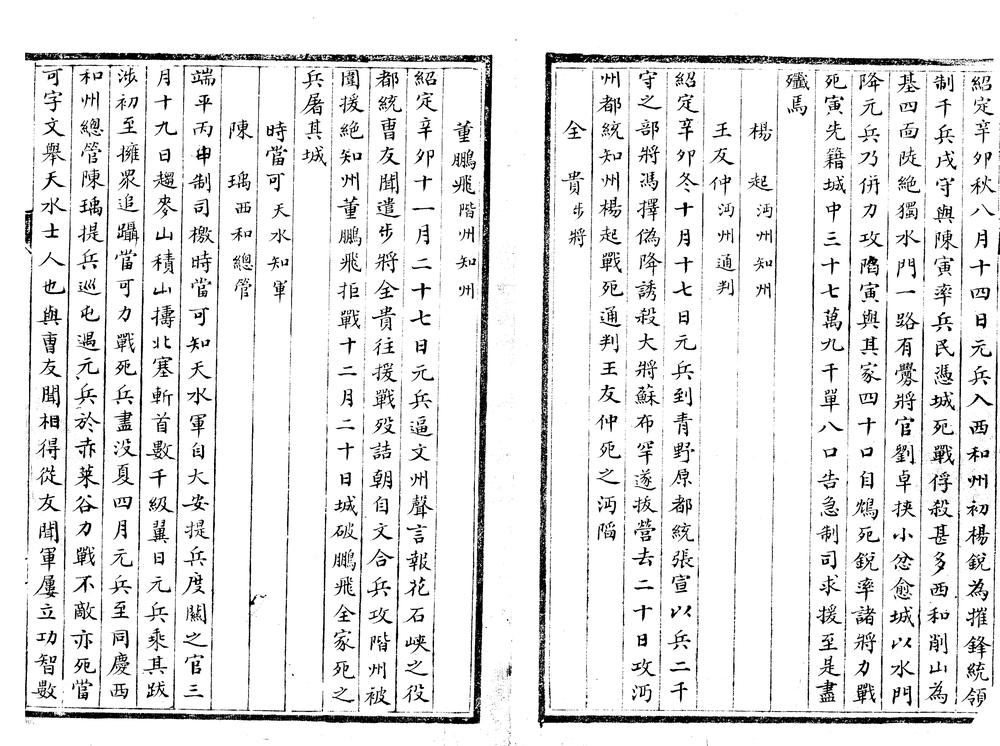 紹定辛卯秋八月十四日元兵入西和州初楊銳為摧鋒統領
制千兵戍守與陳寅率兵民憑城死戰俘殺甚多西和削山為
基四面陡絕獨水門一路有釁將官劉卓挾小忿愈城以水門
降元兵乃併力攻陷寅與其家四十口自鴆死銳率諸將力戰
死寅先籍城中三十七萬九千單八口告急制司求援至是盡
殲焉
楊起沔州知州
王友仲沔州通判
紹定辛卯冬十月十七日元兵到青野原都統張宣以兵二千
守之部將馮擇偽降誘殺大將蘇布罕遂拔營去二十日攻沔
州都統知州楊起戰死通判王友仲死之沔陷
全貴步將
董鵬飛階州知州
紹定辛卯十一月二十七日元兵逼文州聲言報花石峽之役
都統曹友聞遣步將全貴往援戰歿詰朝自文合兵攻階州被
圍援絕知州董鵬飛拒戰十二月二十日城破鵬飛全家死之
兵屠其城
時當可天水知軍
陳瑀西和總管
端平丙申制司檄時當可知天水軍自大安提兵度關之官三
月十九日趨麥山積山擣北塞斬首數千級翼日元兵乘其跋
涉初至擁眾追躡當可力戰死兵盡沒夏四月元兵至同慶西
和州總管陳瑀提兵巡屯遏元兵於赤萊谷力戰不敵亦死當
可字文舉天水士人也與曹友聞相得從友聞軍屢立功智數